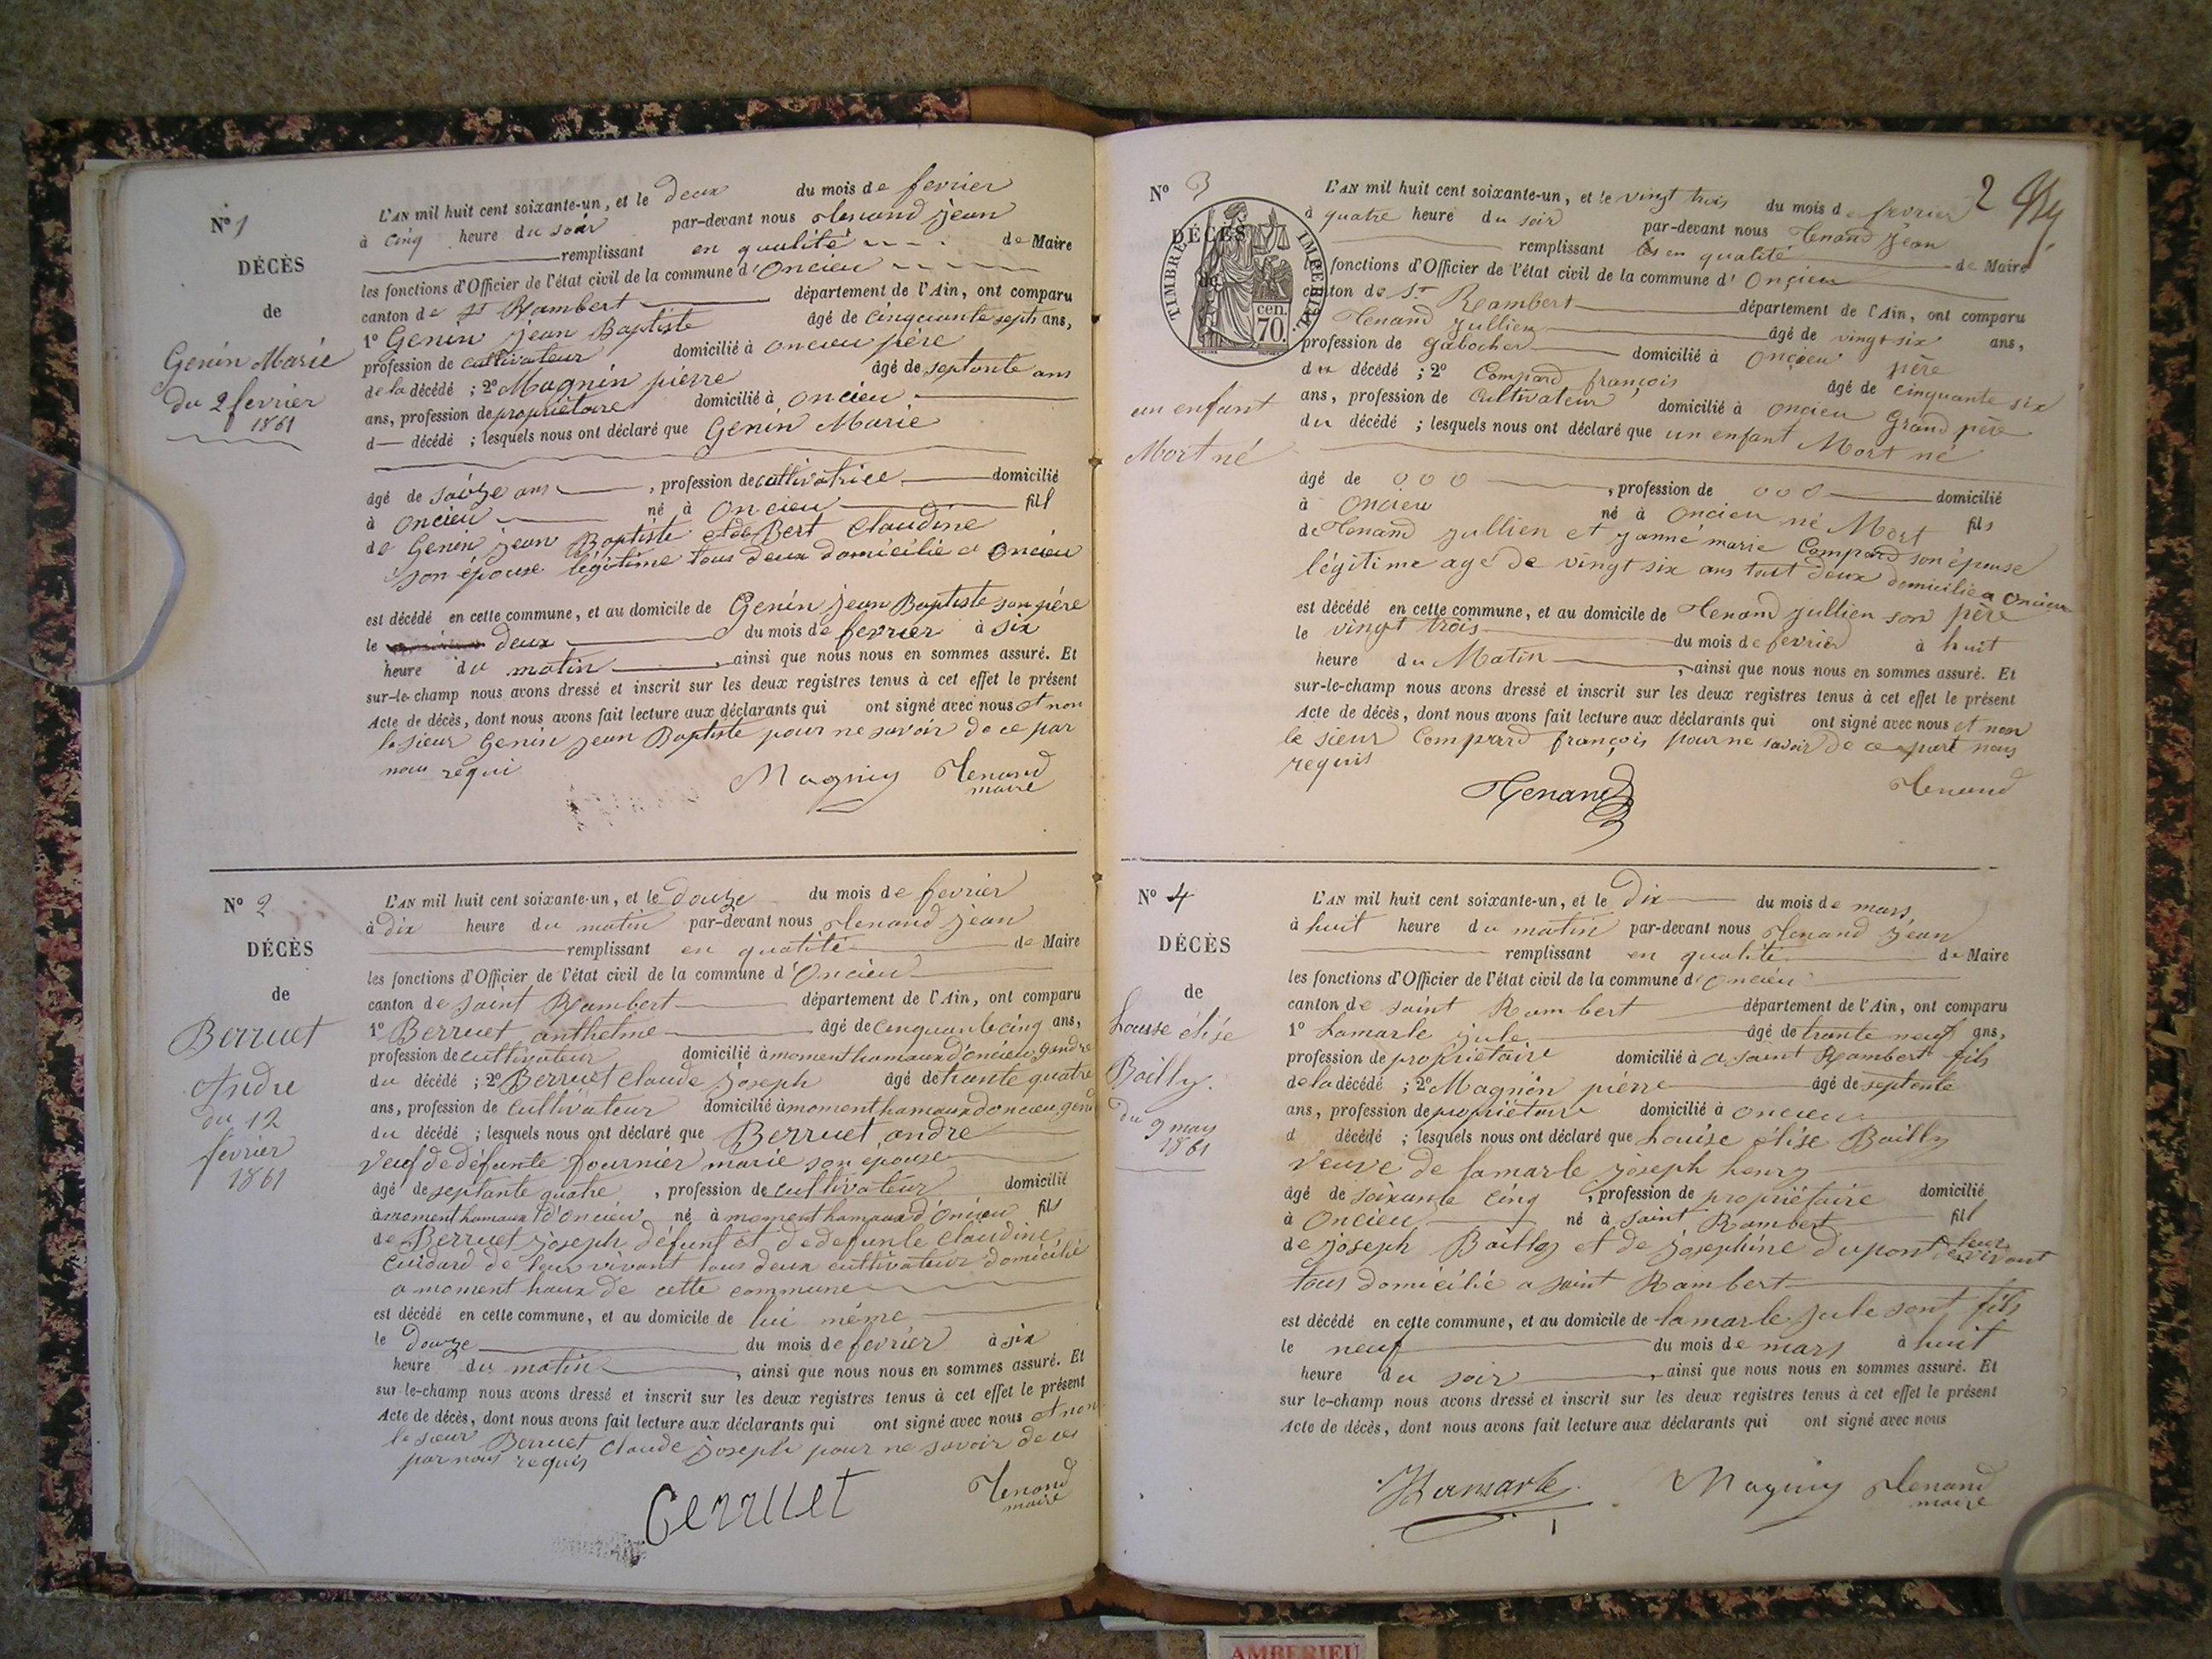 Nº 1
DÉCÈS
de
Genin Marie
du 2 fevrier
1861
L'AN mil huit cent soixante-un, et le deux du mois de fevrier
à cinq heure du soir par-devant nous Tenand jean
remplissant en qualité de Maire
les fonctions d'Officier de l'état civil de la commune d'Oncieu
canton de St Rambert département de l'Ain, ont comparu
1º Genin jean Baptiste âgé de cinquante sept ans,
profession de cultivateur domicilié à oncieu père
de la décédé ; 2º Magnin pierre âgé de septante ans
ans, profession de propriétaire domicilié à oncieu
d décédé ; lesquels nous ont déclaré que Genin Marie
âgé de saize ans, profession de cultivatrice domicilié
à oncieu né à oncieu fil
de Genin jean Baptiste et de Bert Claudine
son épouse légitime tous deux domicilié a oncieu
est décédé en cette commune, et au domicile de Genin jean Baptiste son père
le deux du mois de fevrier à six
heure du matin, ainsi que nous nous en sommes assuré. Et
sur-le-champ nous avons dressé et inscrit sur les deux registres tenus à cet effet le présent
Acte de décès, dont nous avons fait lecture aux déclarants qui ont signé avec nous et non
le sieur Genin jean Baptiste pour ne savoir de ce par
nous requi
Magnin Tenand
maire
Nº 2
DÉCÈS
de
Berruet
Andre
du 12
fevrier
1861
L'AN mil huit cent soixante-un, et le douze du mois de fevrier
à dix heure du matin par-devant nous Tenand jean
remplissant en qualité de Maire
les fonctions d'Officier de l'état civil de la commune d'Oncieu
canton de saint Rambert département de l'Ain, ont comparu
1º Berruet anthelme âgé de cinquante cinq ans,
profession de cultivateur domicilié à moment hamaux d'oncieu gendre
du décédé ; 2º Berruet Claude joseph âgé de trante quatre
ans, profession de cultivateur domicilié à moment hamaux d'oncieu gend
du décédé ; lesquels nous ont déclaré que Berruet andre
veuf de défunte fournier marie son epouse
âgé de septante quatre, profession de cultivateur domicilié
à moment hamaux d'oncieu né à moment hamaux d'oncieu fils
de Berruet joseph défunt et de defunte Claudine
Cuidard de leur vivant tous deux cultivateur domicilié
a moment haux de cette commune
est décédé en cette commune, et au domicile de lui même
le douze du mois de fevrier à six
heure du matin, ainsi que nous nous en sommes assuré. Et
sur le-champ nous avons dressé et inscrit sur les deux registres tenus à cet effet le présent
Acte de décès, dont nous avons fait lecture aux déclarants qui ont signé avec nous et non
le sieur Berruet Claude joseph pour ne savoir de ce
par nous requis
Berruet Tenand
maire
2
Nº 3
DÉCÈS
de
TIMBRE IMPERIAL
70 cen.
un enfant
Mort né
L'AN mil huit cent soixante-un, et le vingt trois du mois de fevrier
à quatre heure du soir par-devant nous Tenand Jean
remplissant en qualité de Maire
fonctions d'Officier de l'état civil de la commune d'Oncieu
canton de St Rambert département de l'Ain, ont comparu
Tenand Jullien âgé de vingt six ans,
profession de gabocher domicilié à Oncieu père
du décédé ; 2º Compard françois âgé de cinquante six
ans, profession de Cultivateur domicilié à Oncieu Grand père
du décédé ; lesquels nous ont déclaré que un enfant Mort né
âgé de 000, profession de 000 domicilié
à Oncieu né à Oncieu né Mort fils
de Tenand Jullien et janne marie Compard son épouse
légitime agé de vingt six ans tout deux domicilié a Oncieu
est décédé en cette commune, et au domicile de Tenand Jullien son père
le vingt trois du mois de fevrier à huit
heure du Matin, ainsi que nous nous en sommes assuré. Et
sur-le-champ nous avons dressé et inscrit sur les deux registres tenus à cet effet le présent
Acte de décès, dont nous avons fait lecture aux déclarants qui ont signé avec nous et non
le sieur Compard françois pour ne savoir de ce part nous
requis
Tenand Tenand
Nº 4
DÉCÈS
de
Louise élise
Bailly.
du 9 mars
1861
L'AN mil huit cent soixante-un, et le Dix du mois de mars
à huit heure du matin par-devant nous Tenand Jean
remplissant en qualité de Maire
les fonctions d'Officier de l'état civil de la commune d'Oncieu
canton de saint Rambert département de l'Ain, ont comparu
1º Lamarle jule âgé de trante neuf ans,
profession de propriétaire domicilié à a saint Rambert fils
de la décédé ; 2º Magnin pierre âgé de septente
ans, profession de propriétaire domicilié à oncieu
d décédé ; lesquels nous ont déclaré que Louise élise Bailly
veuve de lamarle joseph henry
âgé de soixante cinq, profession de propriétaire domicilié
à Oncieu né à saint Rambert fil
de joseph Bailly et de joséphine dupont de leur vivant
tous domicilié a saint Rambert
est décédé en cette commune, et au domicile de lamarle jule sont fils
le neuf du mois de mars à huit
heure du soir, ainsi que nous nous en sommes assuré. Et
sur le-champ nous avons dressé et inscrit sur les deux registres tenus à cet effet le présent
Acte de décès, dont nous avons fait lecture aux déclarants qui ont signé avec nous
Lamarle Magnin Tenand
maire
AMBERIEU